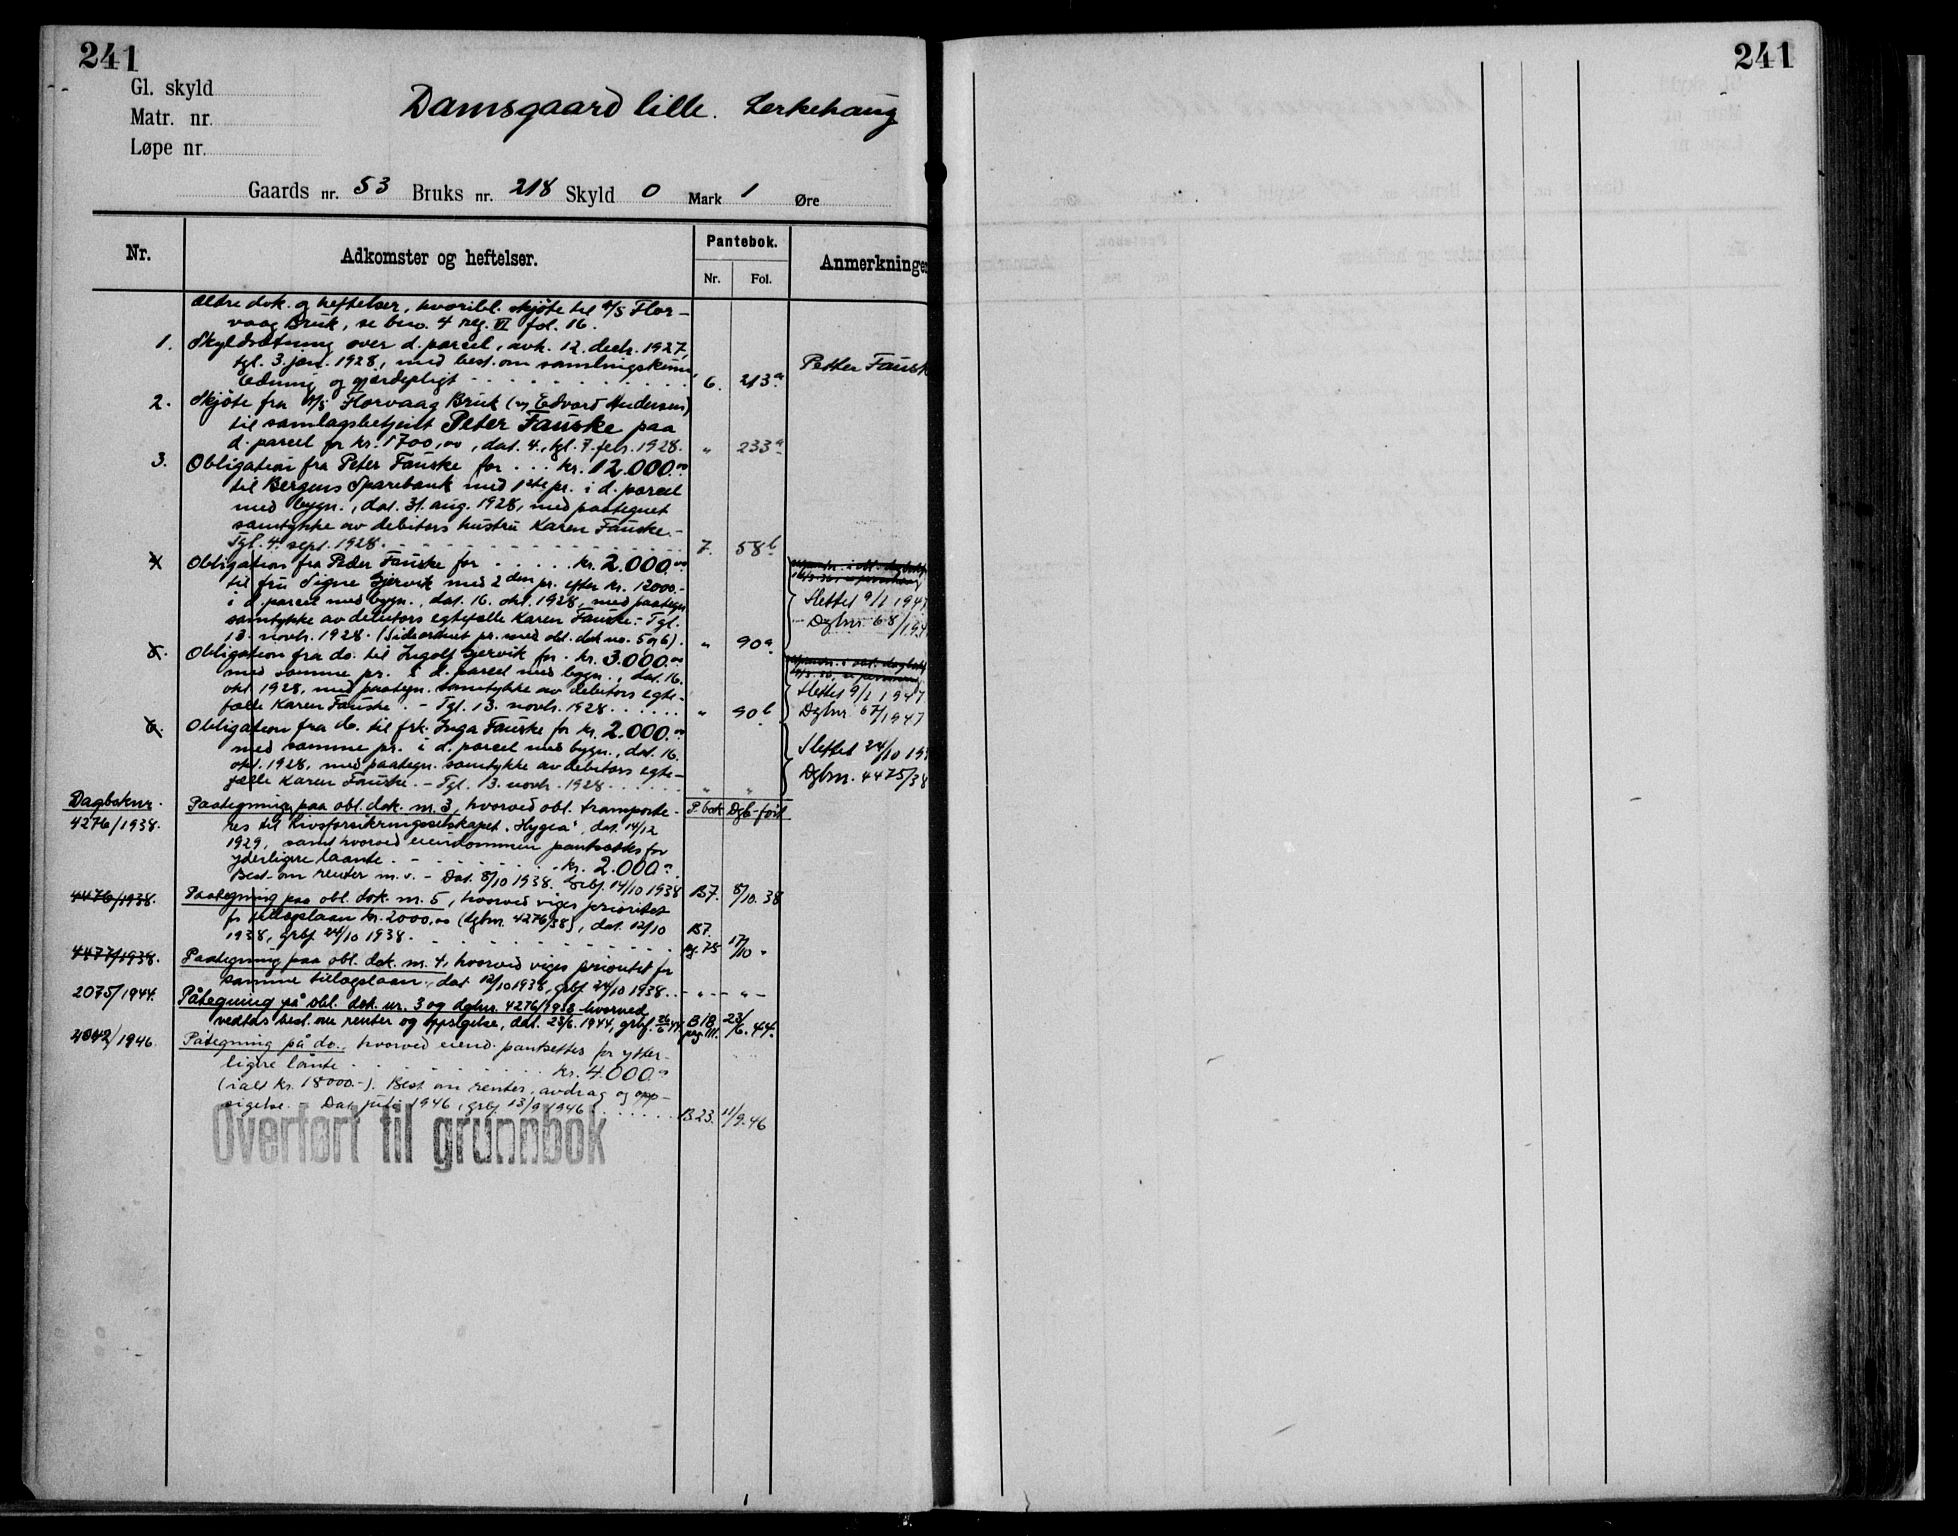 241
Gl. skyld
Matr. nr.
Løpe nr.
Damsgaard lille. Lerkehaug
Gaards nr. 53 Bruks nr. 218 Skyld 0 Mark 1 Øre
Nr. Adkomster og heftelser. Pantebok. Nr. Fol. Anmerkninger
Ældre dok. og heftelser, hvoribl. skjøte til A/S Flor-
vaag Bruk, se 4 reg. VI fol. 16.
1. Skyldsætning over d. parcel, avh. 12. decbr. 1927,
tgl. 3. jan. 1928, med best. om samlingskum,
ledning og gjærdepligt 6. 213a Petter Fausk
2. Skjøte fra A/S Florvaag Bruk (v/ Edvard Andersen)
til samlagsbetjent Peter Fauske paa
d. parcel for kr. 1700,00, dat. 4., tgl. 7. febr. 1928. " 233a
3. Obligation fra Peter Fauske for ... kr. 12.000.00
til Bergens Sparebank med 1ste pr. i d. parcel
med bygn., dat. 31. aug. 1928, med paategnet
samtykke av debitors hustru Karen Fauske.-
Tgl. 4. sept. 1928. 7. 58b
4. Obligation fra Peder Fauske for ..... kr. 2.000.00
til fru Signe Gjervik med 2den pr. efter kr. 12000.-
i d. parcel med bygn., dat. 16. okt. 1928, med paategn.
samtykke av debitors egtefælle Karen Fauske.- Tgl.
13. novbr. 1928. (Sideordnet pr. med obl. dok no. 5 og 6). " 90a
Slettet 9/1 1947
Dgbnr. 68/194
5. Obligation fra do. til Ingolf Gjervik for kr. 3.000.00
med samme pr. i d. parcel med bygn., dat. 16.
okt 1928, med paategn. samtykke av debitors egte-
fælle Karen Fauske. - Tgl. 13. novbr. 1928. " 90b
Slettet 9/1 1947
Dgbnr. 67/1947
6. Obligation fra do. til frk. Inga Fauske for kr. 2.000.00
med samme pr. i d. parcel med bygn., dat. 16.
okt. 1928, med paategn. samtykke av debitors egte-
fælle Karen Fauske. - Tgl. 13. novbr. 1928. " "
Slettet 24/10 193
Dgbnr. 4475/38
Dagboknr. Paategning paa obl. dok. nr. 3, hvorved obl. transporte- P. bok Dgb-ført
4276/1938. res til Livsforsikringsselskapet "Hygea", dat. 14/12
1929, samt hvorved eiendommen pantsættes for
yderligere laante. - kr. 2.000.00
Best. om renter m.v. - Dat. 8/10 1938. Grbf. 14/10 1938 B7. 8/10. 38
4476/1938. Paategning paa obl. dok. nr. 5, hvorved viges prioritet
for tillægslaan kr. 2000,00 (dgbnr. 4276/38), dat. 12/10
1938, grbf. 24/10 1938. B7. pg. 75 17/10 "
4477/1938. Paategning paa obl. dok. nr. 4, hvorved viges prioritet for
samme tillægslaan, dat 12/10 1938, grbf. 24/10 1938. - " - - " -
2075/1944. Påtegning på obl. dok. nr. 3 og dgbnr. 4276/1938 hvorved
vedtas best. om renter og oppsigelse, dat. 23/6. 1944, grbf. 26/6 44. B18 pag. 111. 23/6. 44.
2042/1946. Påtegning på do., hvorved eiend. pantsettes for ytter-
ligere lånte kr. 4.000.00
(ialt kr. 18000.-). Best om renter, avdrag og opp-
sigelse. - Dat. juli 1946, grbf. 13/9 1946. B23. 11/9. 46
Overført til grunnbok
241